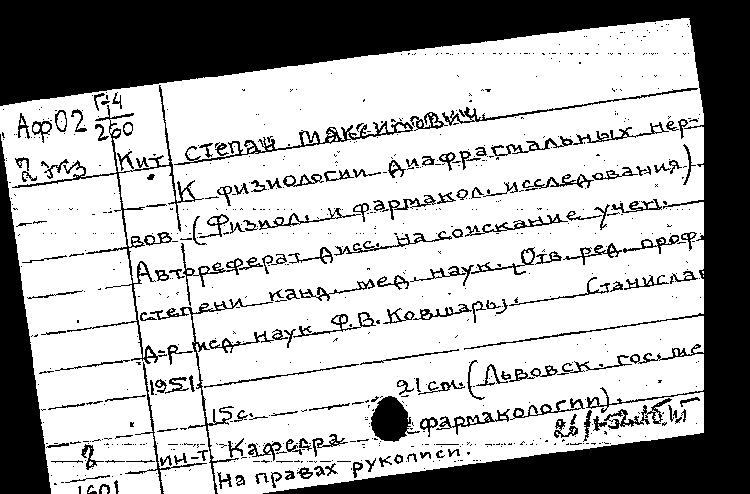 Аф02 Г-4/260
2 экз
Кит, Степан Максимович.
К физиологии диафрагмальных нер-
вов (Физиол. и фармакол. исследования)
Автореферат дисс. на соискание учен.
степени канд. мед. наук. [Отв. ред. проф.
д-р мед. наук Ф.В. Ковшарь]. Станислав
1951.
15 с. 21 см. (Львовск. гос. ме
ин-т. Кафедра фармакологии).
8
На правах рукописи.